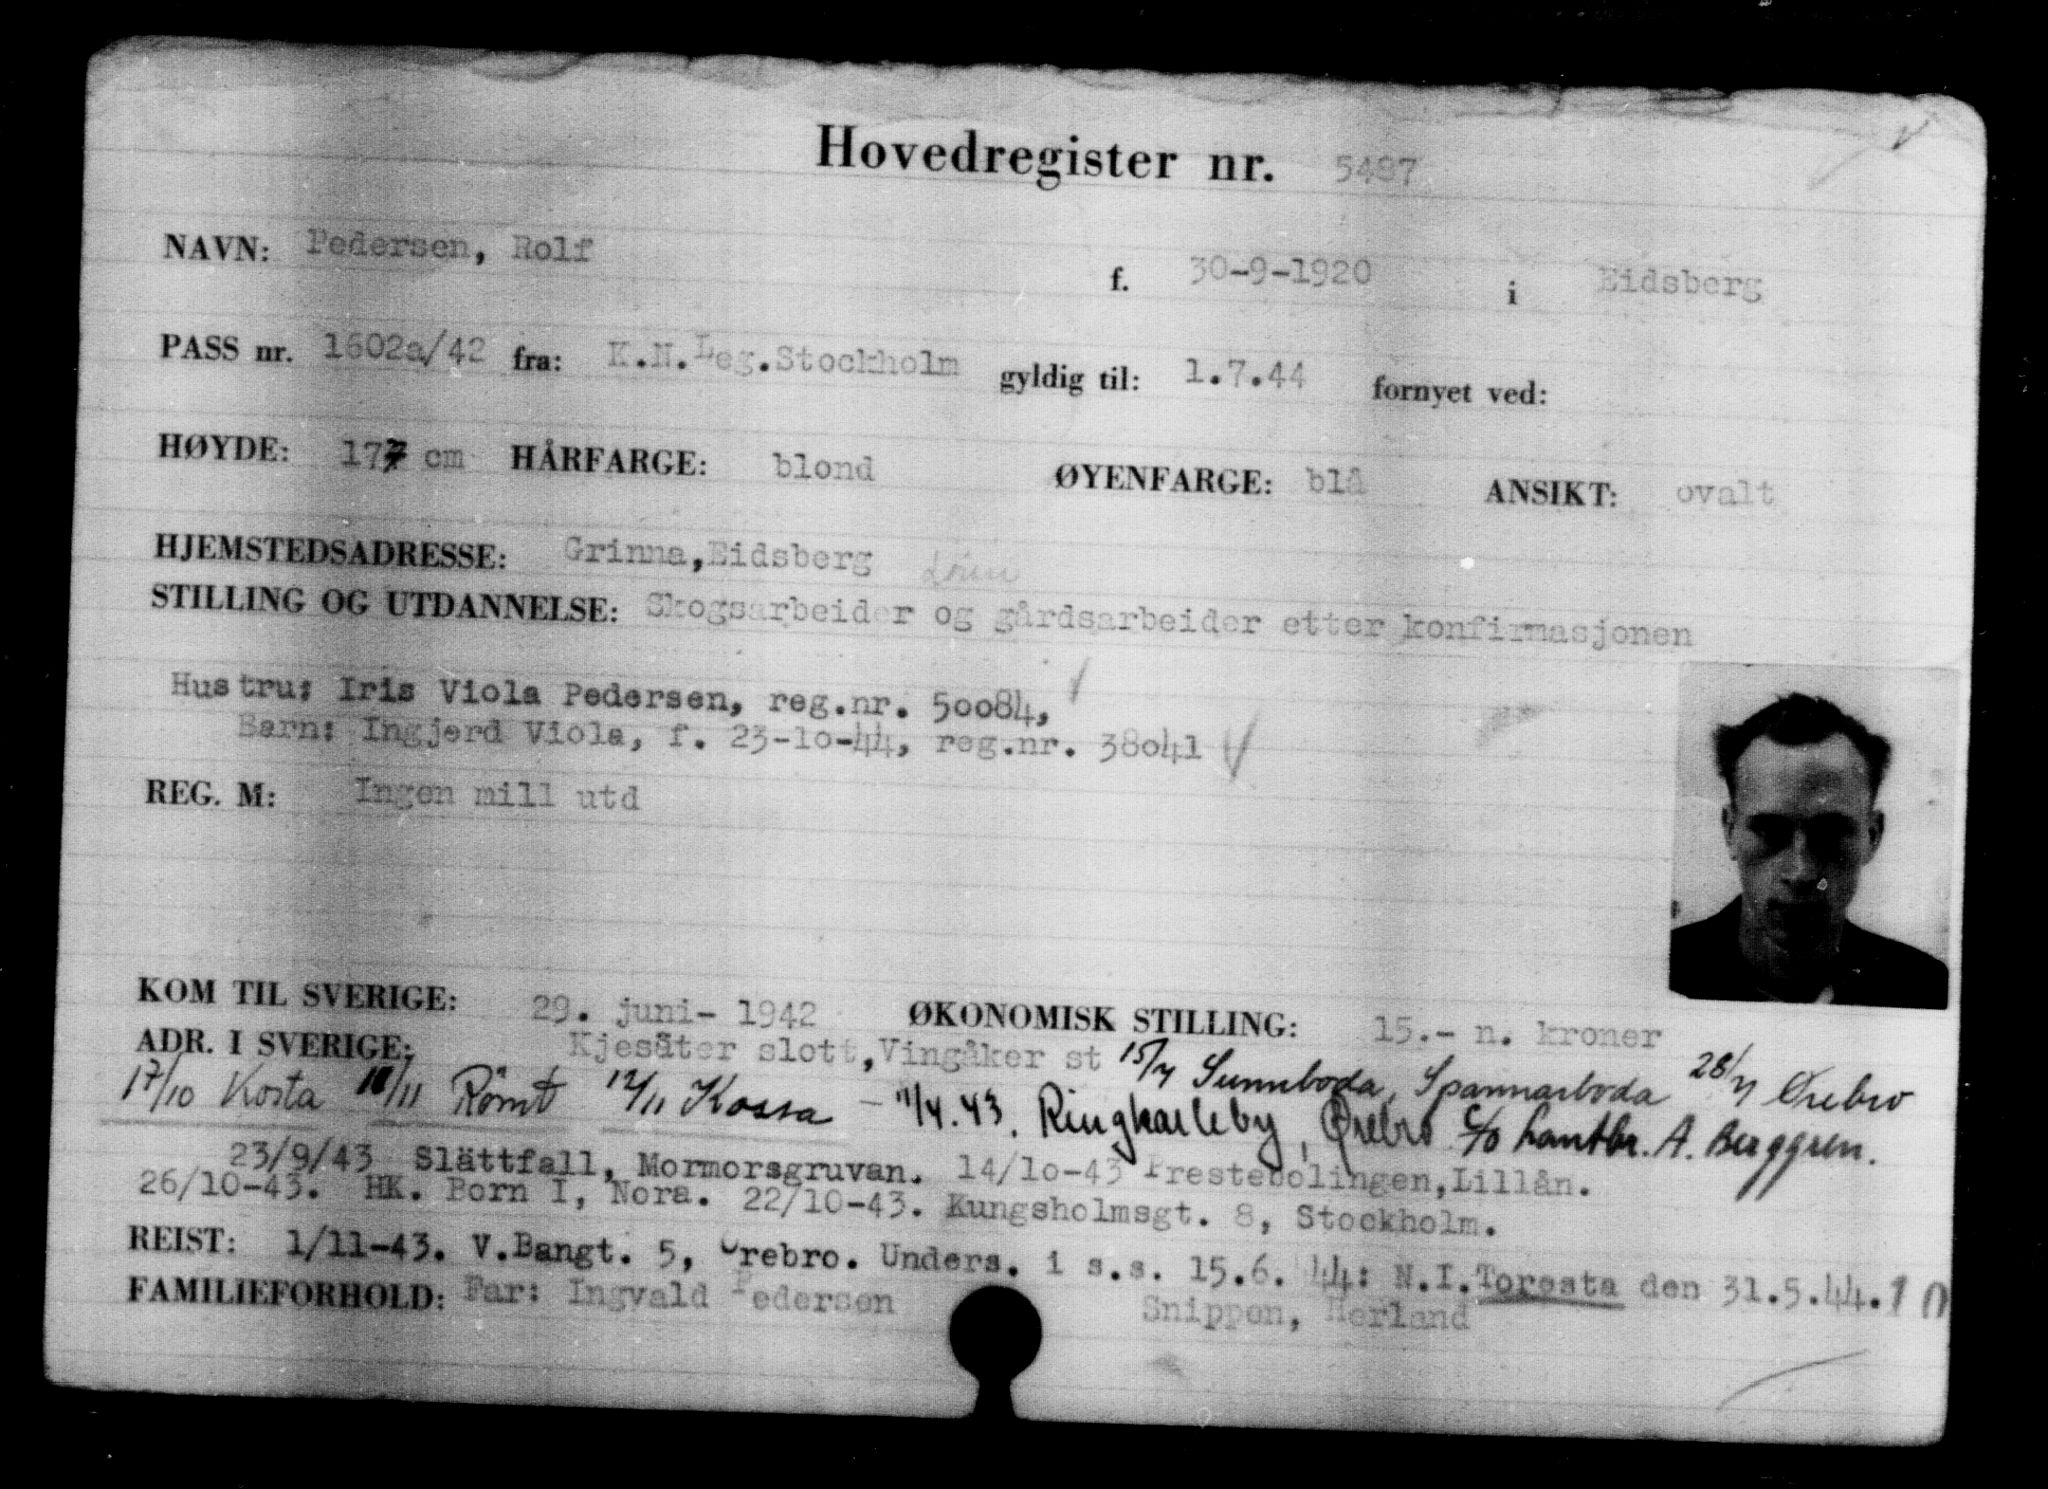 Hovedregister nr. 5487
NAVN: Pedersen, Rolf f. 30-9-1920 i Eidsberg
PASS nr. 1602a/42 fra: K.N.Leg.Stockholm gyldig til: 1.7.44 fornyet ved:
HØYDE: 177 cm HÅRFARGE: blond ØYENFARGE: blå ANSIKT: ovalt
HJEMSTEDSADRESSE: Grinna,Eidsberg
STILLING OG UTDANNELSE: Skogsarbeider og gårdsarbeider etter konfirmasjonen
Hustru: Iris Viola Pedersen, reg.nr. 50084,
Barn: Ingjerd Viola, f. 23-10-44, reg.nr. 38041
REG. M: Ingen mill utd
KOM TIL SVERIGE: 29. juni- 1942 ØKONOMISK STILLING: 15.- n. kroner
ADR. I SVERIGE: Kjesäter slott,Vingåker st 15/7 Sunnboda, Spannarboda 28/7 Ørebro
17/10 Kosta 10/11 Römt 12/11 Kossa - 11/4.43. Ringkarleby, Ørebro c/o Lantbr. A. Berggren.
23/9/43 Slättfall, Mormorsgruvan. 14/10-43 Prestebolingen,Lillån.
26/10-43. HK. Born I, Nora. 22/10-43. Kungsholmsgt. 8, Stockholm.
REIST: 1/11-43. V.Bangt. 5, Örebro. Unders. i s.s. 15.6. 44: N.I.Toresta den 31.5.44.10
FAMILIEFORHOLD: Far: Ingvald Pedersen Snippen, Herland